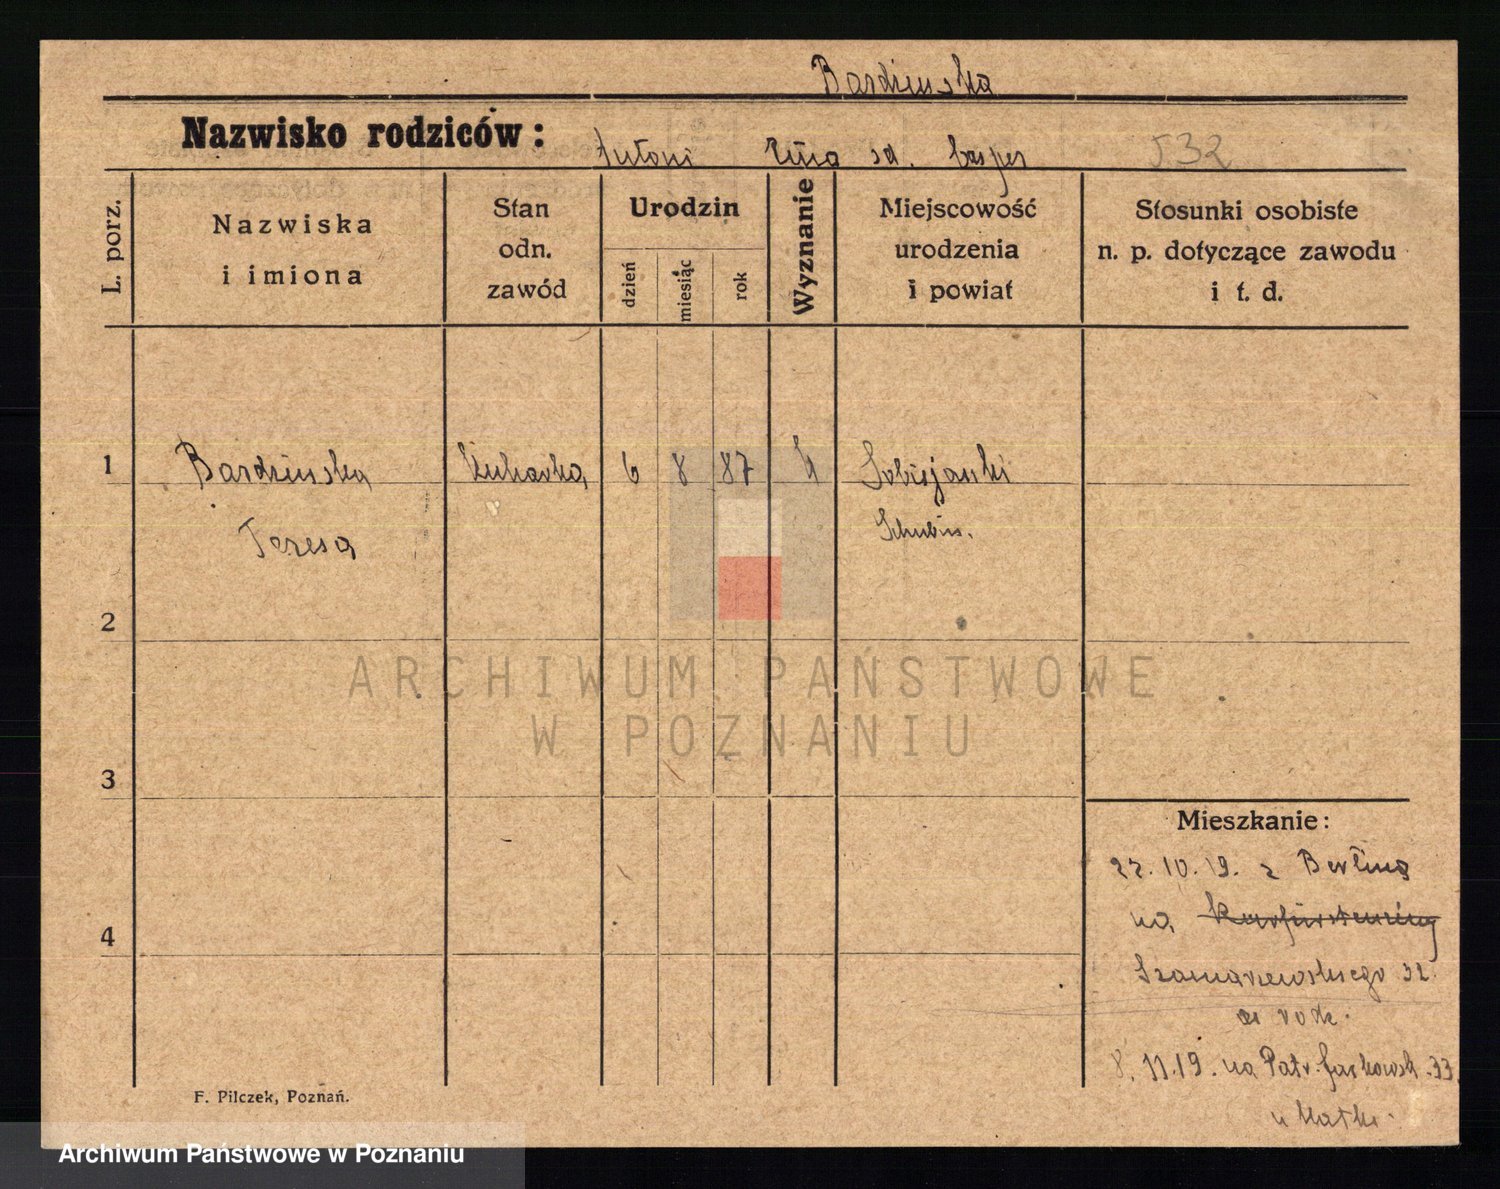 Bardzinska
Nazwisko rodziców: Antoni Anna sd. Casper 532
L. porz.
Nazwiska
i imiona
Stan
odn.
zawód
Urodzin
dzień
miesiąc
rok
Wyznanie
Miejscowość
urodzenia
i powiat
Stosunki osobiste
n. p. dotyczące zawodu
i t. d.
1 Bardzinska Kucharka 6 8 87 k
Teresa Schubin.
2
3
4
Mieszkanie:
22.10.19. z Berlina
na Kurfürstenring
Szamarzewskiego 32.
8.11.19. na Patr. Jackowsk. 33.
u Matki.
F. Pilczek, Poznań.
ARCHIWUM PAŃSTWOWE
W POZNANIU
Archiwum Państwowe w Poznaniu